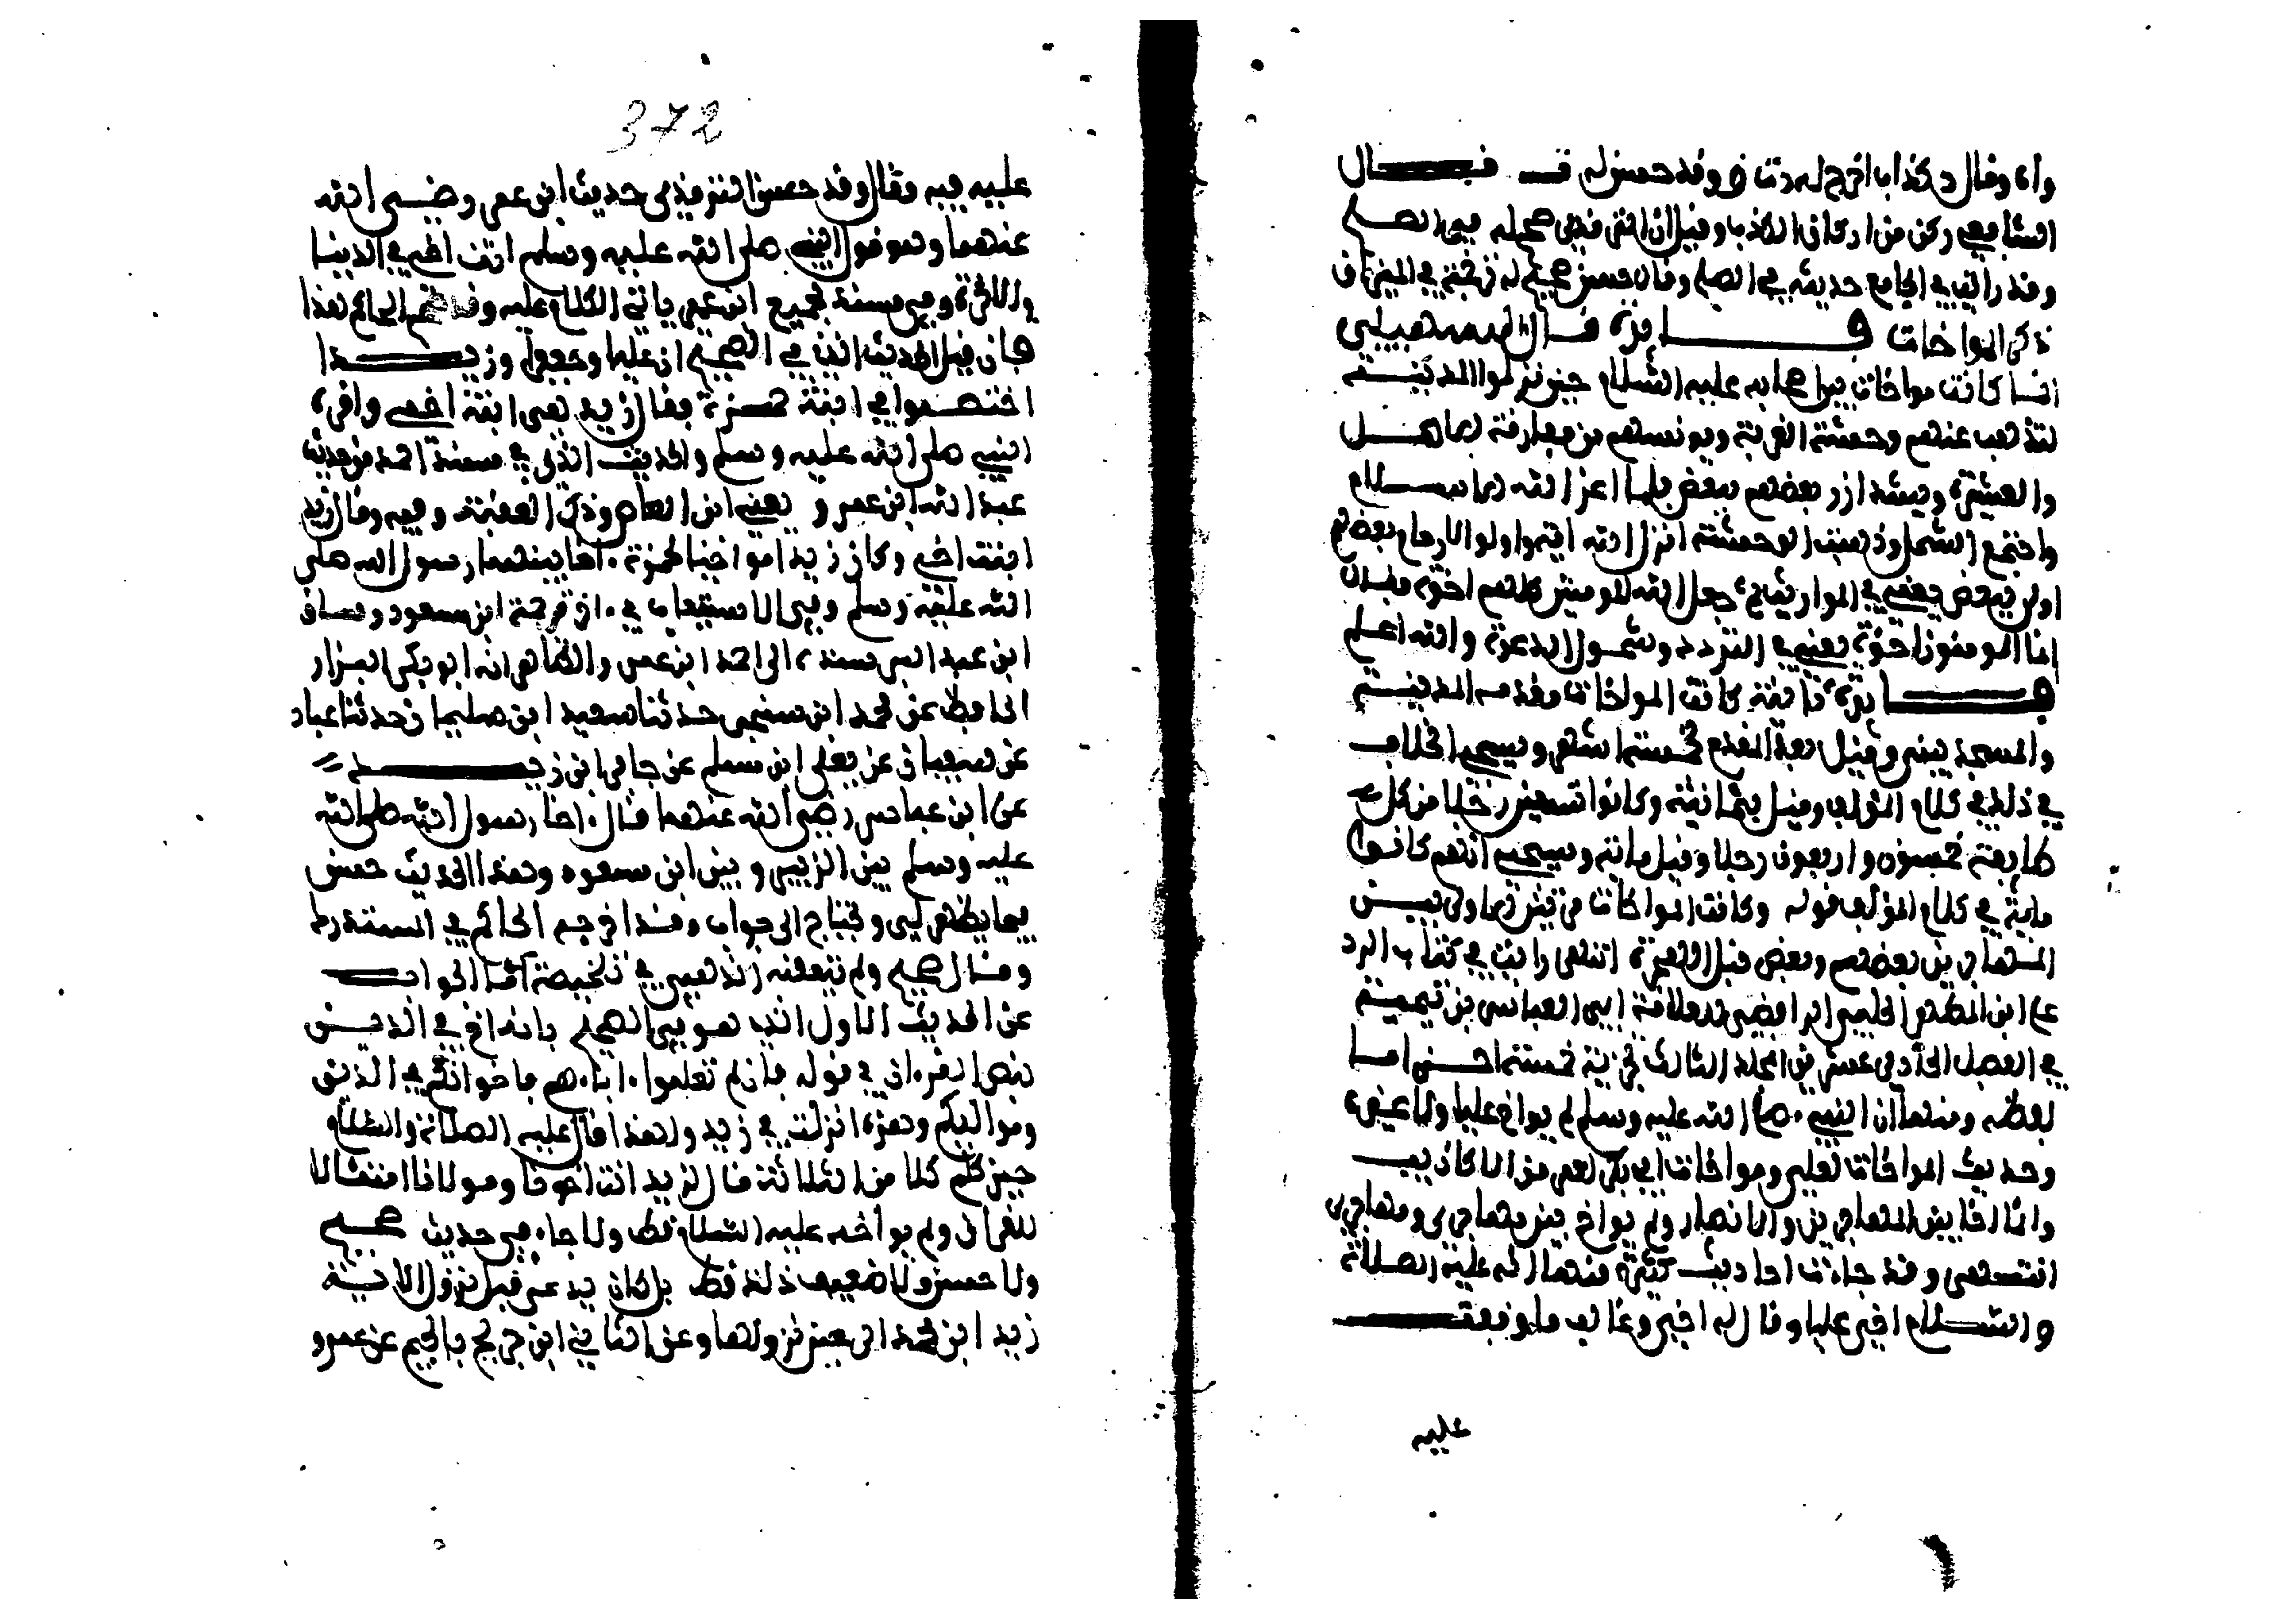 واه وقال د كذاب اخرج له د ت ق وقد حسن له ت قــــال
الشافعي ركن من اركان الكذب وقيل ان الترمذي صححه في الصلح
وقد رايت في الجامع حديثه في الصلح وقال حسن صحيح له ترجمة في الميزان
ذكر المواخات فــــايدة قــال السهيلي
انما كانت مواخات بين اصحابه عليه السلام حين نزلوا المدينــة
لتذهب عنهم وحشة الغربة ويونسهم من مفارقة الاهــل
والعشيرة ويشد ازر بعضهم ببعض فلما اعز الله الاســلام
واجتمع الشمل وذهبت الوحشة انزل الله اية واولوا الارحام بعضهم
اولى ببعض يعني في المواريث ثم جعل الله المومنين كلهم اخوة فقال
انما المومنون اخوة يعني في التودد وشمول الدعوة والله اعلم
فــــايدة ثانية كانت المواخات مقدمه المدينــة
والمسجد يبنى وقيل بعد المقدم بخمسة اشهر وسيجي الخلاف
في ذلك في كلام المولف وقيل بثمانية وكانوا تسعين رجلا من كل
طايفة خمسون واربعون رجلا وقيل ماية وسيجي انهم كانوا
ماية في كلام المؤلف قوله وكانت المواخات مرتين الاولى بيــن
المهاجرين بعضهم وبعض قبل الهجرة انتهى رايت في كتاب الرد
على ابن المطهر الحلي الرافضي للعلامة ابي العباس بن تيميــة
في الفصل الحادي عشر من المجلد الثالث تجزية خمسة احسن امــا
لفظه ومنها ان النبي صلى الله عليه وسلم لم يواخ عليا ولا غيره
وحديث المواخات لعلي ومواخات ابي بكر لعمر من الاكاذيب
وانما اخا بين المهاجرين والانصار ولم يواخ بين مهاجري ومهاجري
انتــهى وقد جاءت احاديث كثيرة منها انه عليه الصلاة
والســلام اخى عليا وقال له اخي وغالب ما وقعــت
عليه
372
عليه فيه وقال وقد حسن الترمذي حديث ابن عمر رضــي الله
عنهما وهو قول النبي صلى الله عليه وسلم انت اخي في الدنيا
والاخرة وفي سنده جميع ابن عمير ياتي الكلام عليه وقد صحح الحاكم هذا
فان قيل الحديث الثابت في الصحيح ان عليا وجعفرا وزيــــدا
اختصموا في ابنة حمــزة فقال زيد هي ابنة اخي واقره
النبي صلى الله عليه وسلم والحديث الذي في مسند احمد من حديث
عبد الله ابن عمرو يعني ابن العاص وذكر القصة وفيه وقال زيد
ابنت اخي وكان زيدا مواخيا لحمزة اخا بينهما رسول الله صلى
الله عليه وسلم وفي الاستيعاب في اخر ترجمة ابن مسعود وساق
ابن عبد البر سنده الى احمد ابن عمر والظاهر انه ابو بكر البزار
الحافظ عن محمد ابن سنجر حدثنا سعيد ابن سليمان حدثنا عباد
عن سفيان عن يعلى ابن مسلم عن جابر ابن زيــــد
عن ابن عباس رضي الله عنهما قال اخا رسول الله صلى الله
عليه وسلم بين الزبير وبين ابن مسعود وهذا الحديث حسن
فيما يظهر لي ويحتاج الى جواب وقد اخرجه الحاكم في المستدرك
وقــال صحيح ولم يتعقبه الذهبي في تلخيصه اما الجواب
عن الحديث الاول الذي هو في الصحيح بانه اخ في الديــن
بنص القرءان في قوله فان لم تعلموا ءاباءهم فاخوانكم في الدين
ومواليكم وهذه انزلت في زيد ولهذا قال عليه الصلاة والسلام
حين كلم كلا من الثلاثة قال لزيد انت اخونا ومولانا امتثالا
للقرءان ولم يواخه عليه السلام قط ولا جاء في حديث صحيح
ولا حسن ولا ضعيف ذلك قط بل كان يدعى قبل نزول الايــة
زيد ابن محمد الى حين نزولها وعن الثاني ابن جريج بالجيم عن عمرو